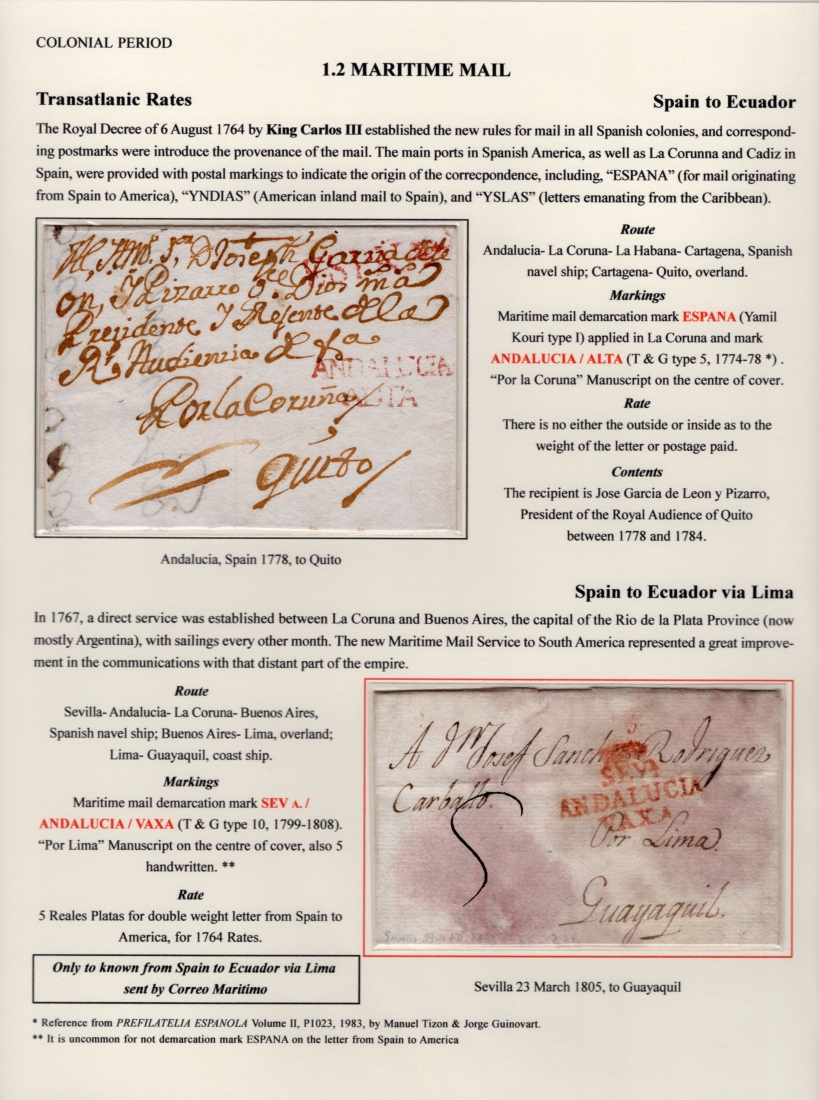 COLONIAL PERIOD
1.2 MARITIME MAIL
Transatlanic Rates
Spain to Ecuador
The Royal Decree of 6 August 1764 by King Carlos III established the new rules for mail in all Spanish colonies, and correspond-
ing postmarks were introduce the provenance of the mail. The main ports in Spanish America, as well as La Corunna and Cadiz in
Spain, were provided with postal markings to indicate the origin of the correcpondence, including, “ESPANA” (for mail originating
from Spain to America), “YNDIAS” (American inland mail to Spain), and “YSLAS” (letters emanating from the Caribbean).
Garcia de Le
on, y Pizarro Dios
Presidente y Rejente de la
Rl Audiencia de
ANDALUCIA
ALTA
Por la Coruña
Quito
Andalucia, Spain 1778, to Quito
Route
Andalucia- La Coruna- La Habana- Cartagena, Spanish
navel ship; Cartagena- Quito, overland.
Markings
Maritime mail demarcation mark ESPANA (Yamil
Kouri type I) applied in La Coruna and mark
ANDALUCIA / ALTA (T & G type 5, 1774-78 *) .
“Por la Coruna” Manuscript on the centre of cover.
Rate
There is no either the outside or inside as to the
weight of the letter or postage paid.
Contents
The recipient is Jose Garcia de Leon y Pizarro,
President of the Royal Audience of Quito
between 1778 and 1784.
Spain to Ecuador via Lima
In 1767, a direct service was established between La Coruna and Buenos Aires, the capital of the Rio de la Plata Province (now
mostly Argentina), with sailings every other month. The new Maritime Mail Service to South America represented a great improve-
ment in the communications with that distant part of the empire.
Route
Sevilla- Andalucia- La Coruna- Buenos Aires,
Spanish navel ship; Buenos Aires- Lima, overland;
Lima- Guayaquil, coast ship.
Markings
Maritime mail demarcation mark SEV A. /
ANDALUCIA / VAXA (T & G type 10, 1799-1808).
“Por Lima” Manuscript on the centre of cover, also 5
handwritten. **
Rate
5 Reales Platas for double weight letter from Spain to
America, for 1764 Rates.
Only to known from Spain to Ecuador via Lima
sent by Correo Maritimo
A Dn Josef Sanchez Rodriguez
Carballo.
5
SEVA
ANDALUCIA
VAXA
Por Lima
Guayaquil.
Sevilla 23 March 1805, to Guayaquil
* Reference from PREFILATELIA ESPANOLA Volume II, P1023, 1983, by Manuel Tizon & Jorge Guinovart.
** It is uncommon for not demarcation mark ESPANA on the letter from Spain to America